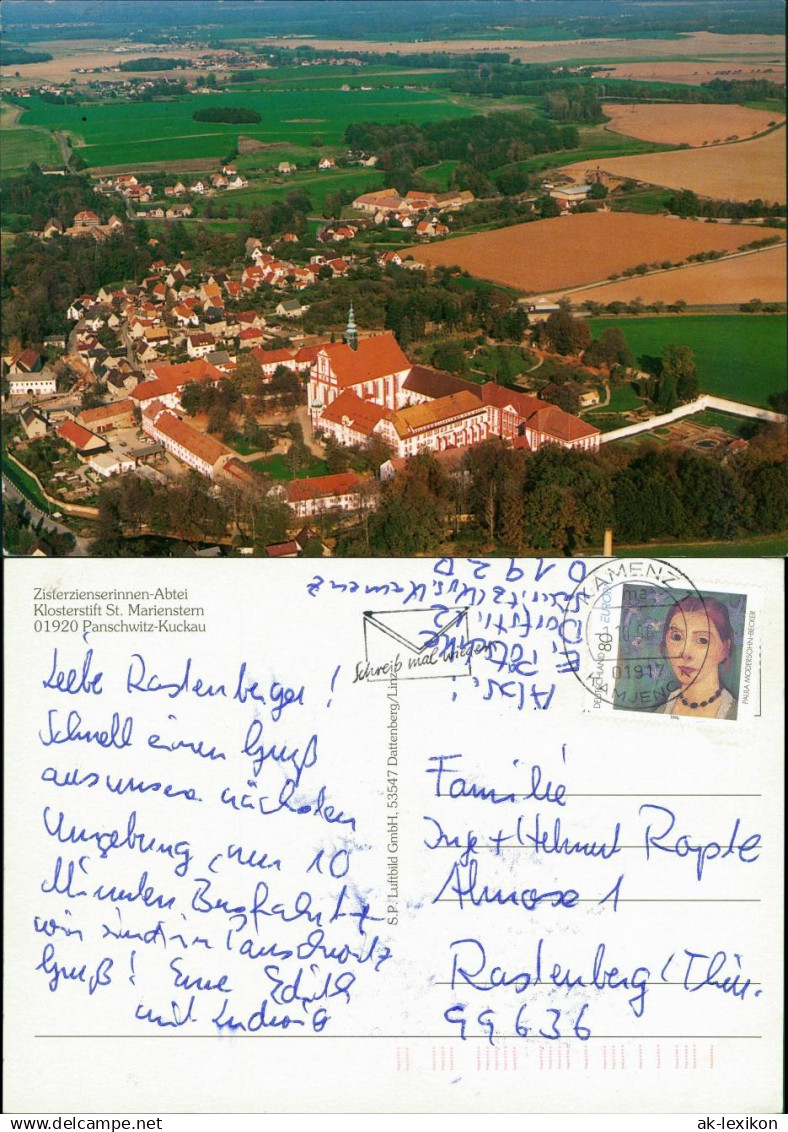 Zisterzienserinnen-Abtei
Klosterstift St. Marienstern
01920 Panschwitz-Kuckau
Liebe Rastenberger!
Schnell einen Gruß
aus unserer nächsten
Umgebung, nur 10
Minuten Busfahrt +
wir sind in Panschwitz
Gruß! Eure Edith
mit Ludwig
S.P. Luftbild GmbH, 53547 Dattenberg/Linz
Schreib mal wieder
Abs.:
E.
Dorfstr. 2
01920
KAMENZ
01917
KAMJENC
DEUTSCHLAND 80 EUROPA
PAULA MODERSOHN-BECKER
Familie
Inge + Helmut Rapte
1
Rastenberg (Thür.
99636
ak-lexikon